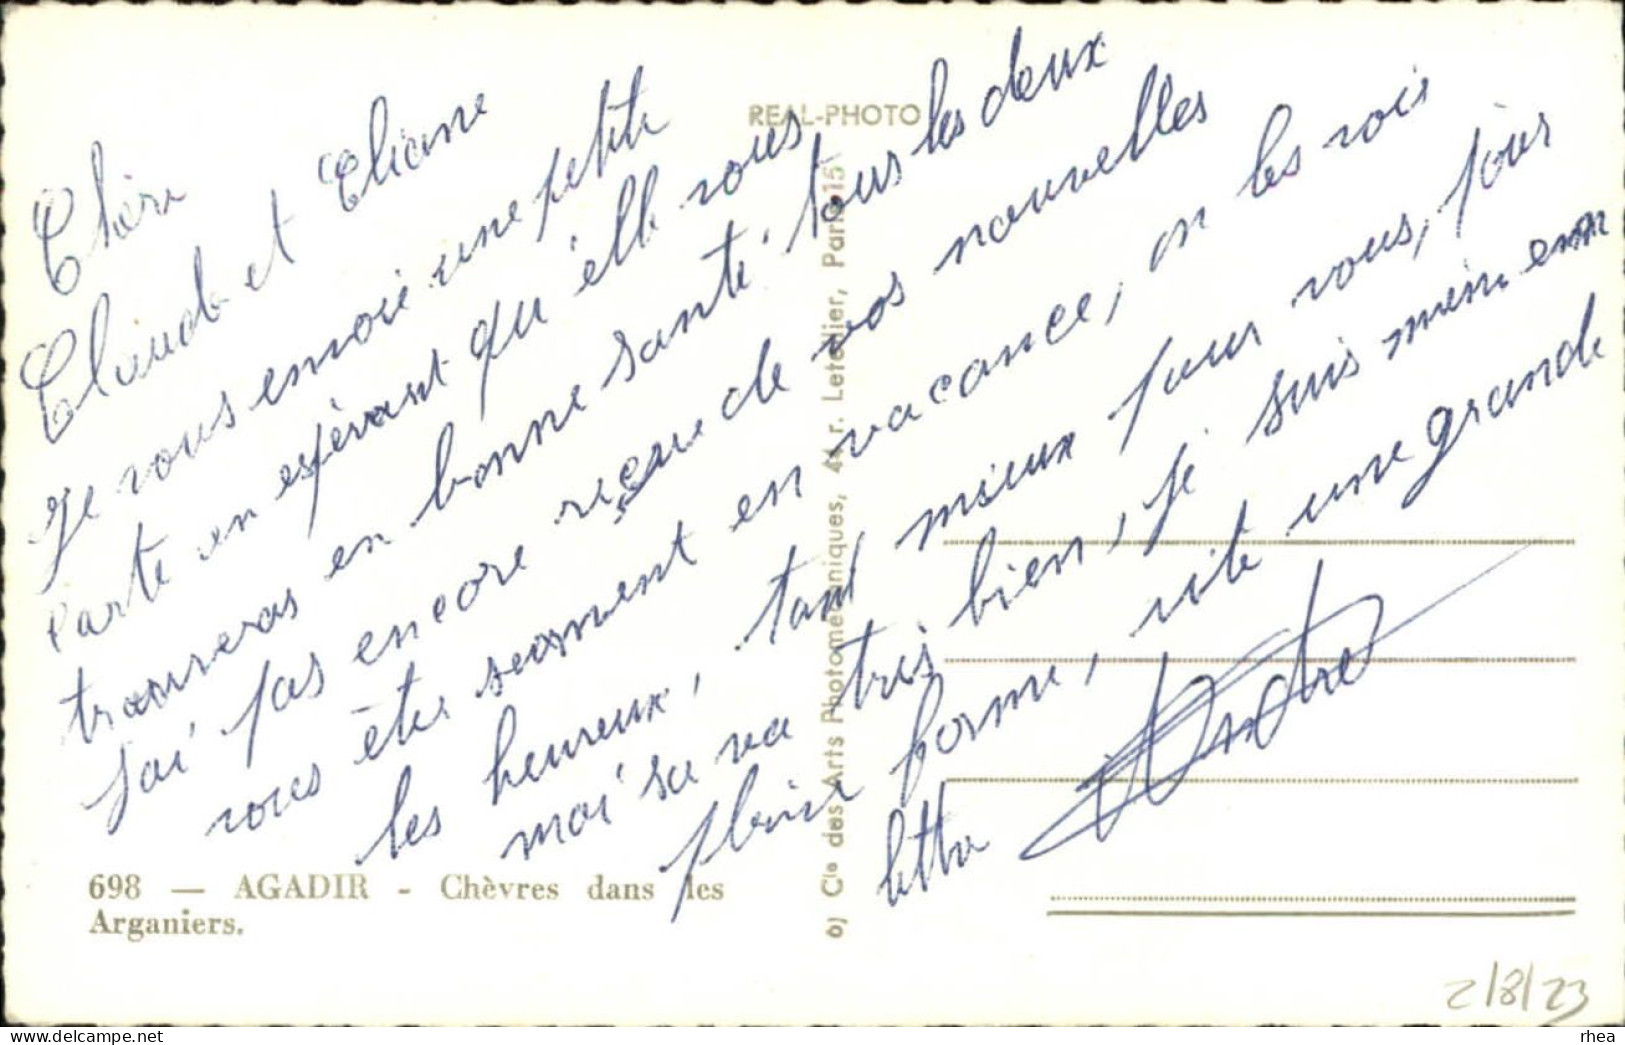 REAL-PHOTO
Chère
Claude et Eliane
Je vous envoie une petite
carte en espérant qu'elle vous
trouveras en bonne santé, tous les deux
J'ai pas encore reçeu de vos nouvelles
vous êtes surment en vacance, on les vois
les heureux, tant mieux pour vous, pour
moi sa va très bien, je suis même en
pleine forme, vite une grande
lettre André
698 — AGADIR - Chèvres dans les
Arganiers.
6) Cie des Arts Photomécaniques, 44 r. Letellier, Paris-15
2/8/23
rhea